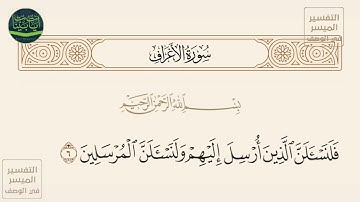 التفسير
الميسر
في الوصف
سُورَةُ الأَعْرَافِ
بِسْمِ اللَّهِ الرَّحْمَٰنِ الرَّحِيمِ
فَلَنَسْـَٔلَنَّ ٱلَّذِينَ أُرْسِلَ إِلَيْهِمْ وَلَنَسْـَٔلَنَّ ٱلْمُرْسَلِينَ ٦
التفسير
الميسر
في الوصف